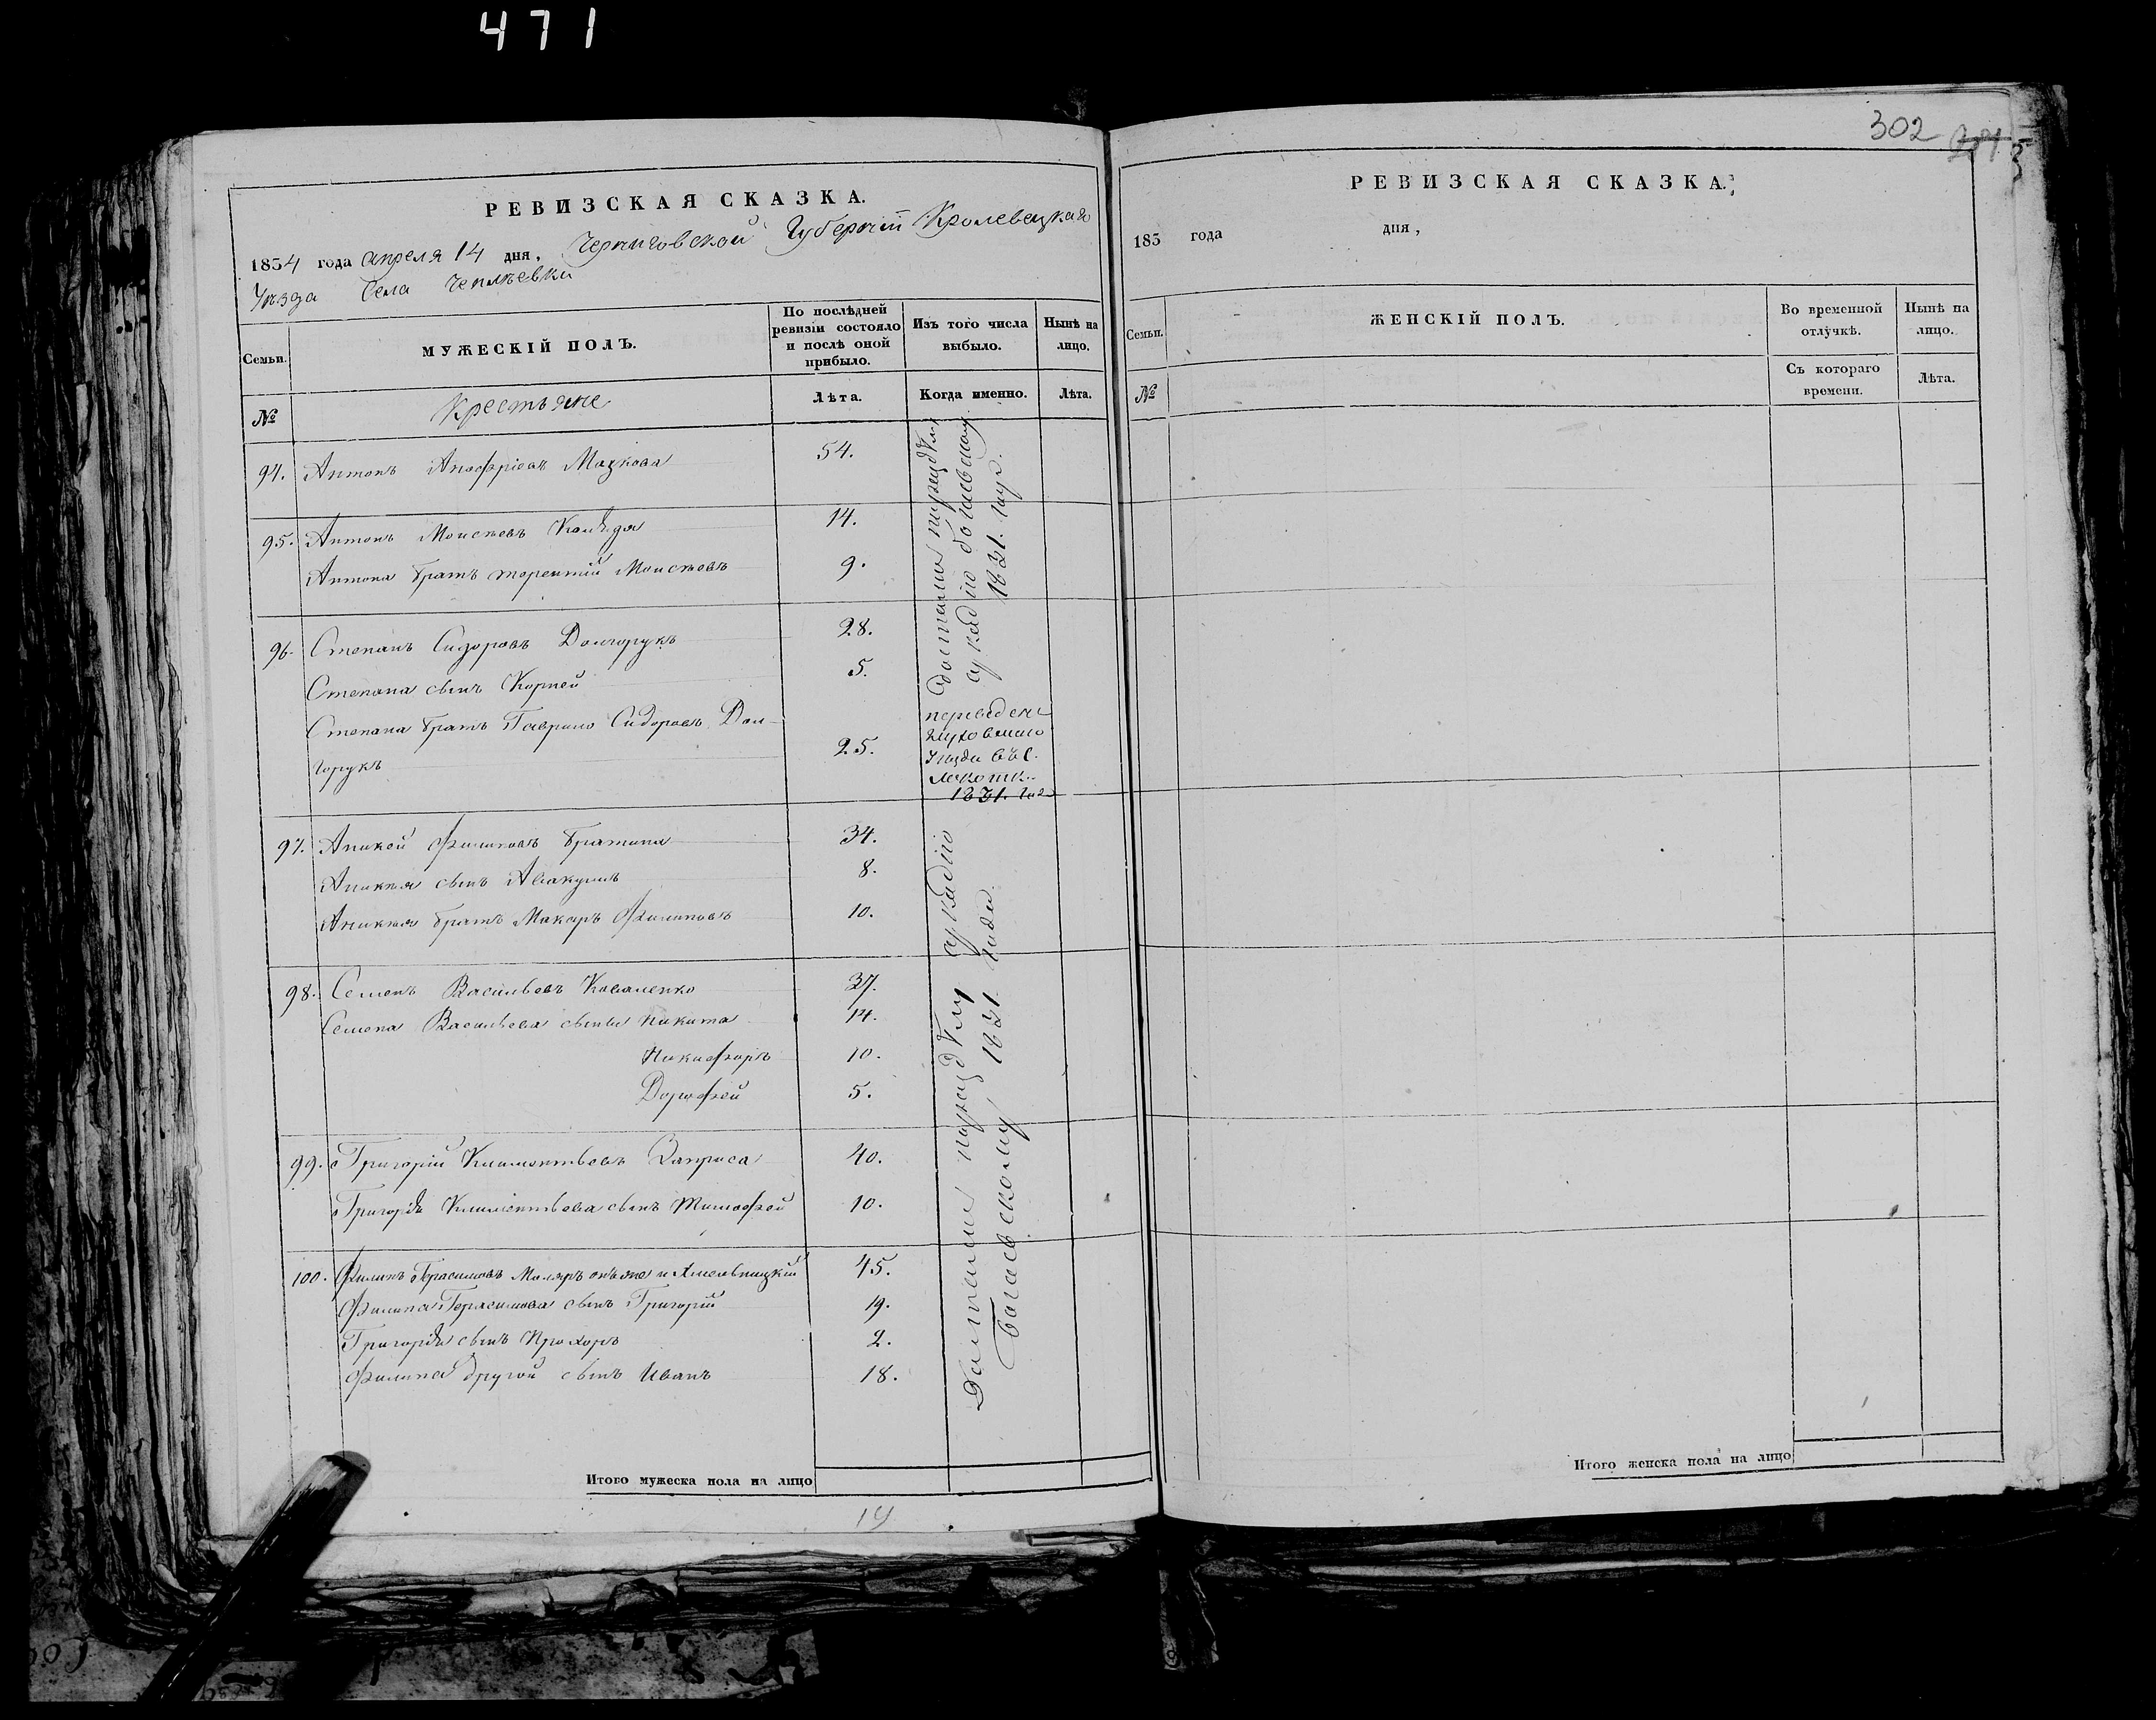 471
302
РЕВИЗСКАЯ СКАЗКА.
1834 года апреля 14 дня, Черниговской Губернiи Кролевецкаго
Уѣзда Села Чеплѣевки
Семьи.
МУЖЕСКІЙ ПОЛЪ.
По послѣдней ревизіи состояло и послѣ оной прибыло.
Изъ того числа выбыло.
Нынѣ на лицо.
№
Крестьяне
Лѣта.
Когда именно.
Лѣта.
94. Антонъ Анофріевъ Мазкова 54.
95. Антонъ Моисѣевъ 14.
Антона братъ терентій Моисѣевъ 9.
96. Степанъ Сидоровъ Долгорукъ 28.
Степана сынъ Корней 5.
Степана братъ Гаврило Сидоровъ Дол-
горукъ 25.
достались по раздѣлу
аркадію богаевскому
1831. году.
переведенъ
глуховского
уѣзда въ с.
1831. год
97. Аникей Филиповъ Братина 34.
Аникея сынъ Авакумъ 8.
Аникея братъ Макаръ Филиповъ 10.
98. Семенъ Васильевъ Коваленко 37.
Семена Васильева сыны Никита 14.
Никифоръ 10.
Дорофей 5.
99. Григорій Климентьевъ 40.
Григорія Климентьева сынъ Тимофей 10.
100. Филипъ Герасимовъ Моляръ онъ же и 45.
Филипа Герасимова сынъ Григорій 19.
Григорія сынъ Прохоръ 2.
Филипа другой сынъ Иванъ 18.
Достались по раздѣлу аркадію
богаевскому 1831 года.
Итого мужеска пола на лицо
14
РЕВИЗСКАЯ СКАЗКА.
183 года дня,
Семьи.
ЖЕНСКІЙ ПОЛЪ.
Во временной отлучкѣ.
Нынѣ на лицо.
№
Съ котораго времени.
Лѣта.
Итого женска пола на лицо